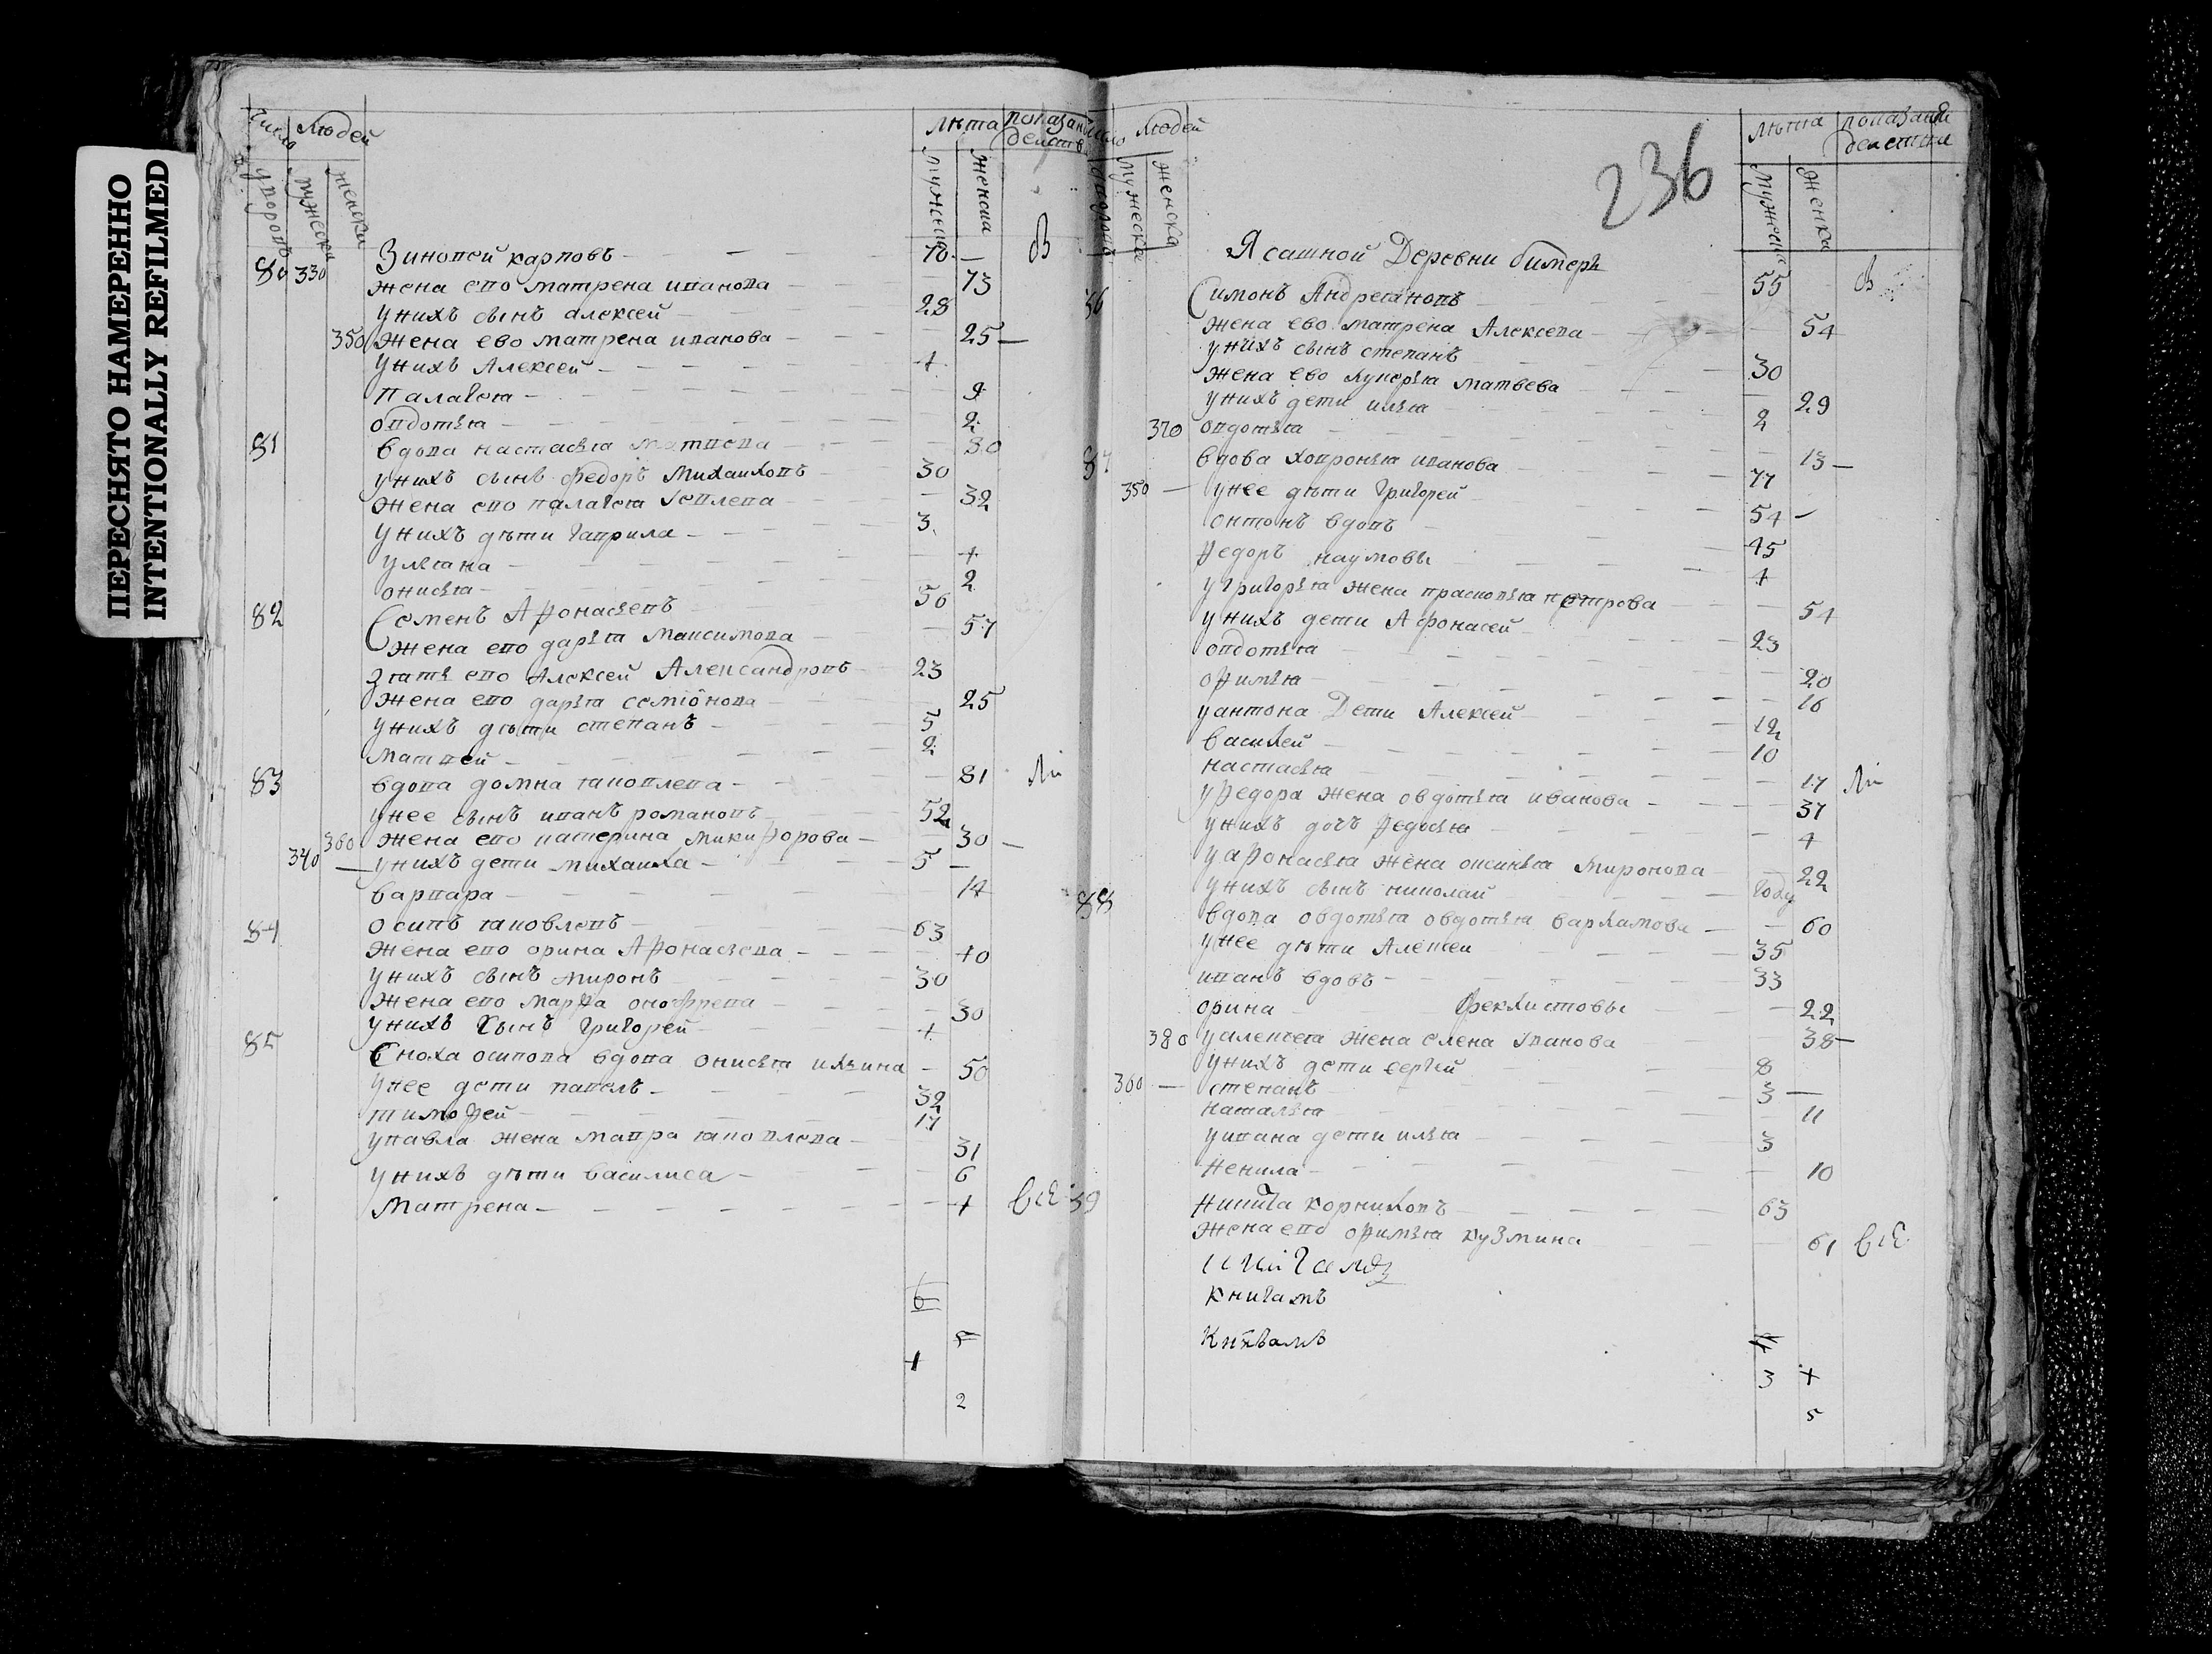 ПЕРЕСНЯТО НАМЕРЕННО
INTENTIONALLY REFILMED
число людей лѣта показан
дворовъ мужеска женска мужска женска действа
80 330 Зиновей карповъ - 70 - В
жена ево матрена иванова - 73
у нихъ сынъ алексей - 28
350 жена ево матрена иванова - 25 -
у нихъ Алексей - 4
палагея - 9
овдотья - 2
81 вдова настасья матвева - 80
у нихъ сынъ федоръ михаиловъ 30
жена ево палагея яковлева - 32
у нихъ дѣти гаврила - 3
ульяна - 4
онисья - 2
82 Семенъ Афонасьевъ 56
жена ево дарья максимова - 57
зять ево Алексей Александровъ - 23
жена ево дарья семіонова - 25
у нихъ дѣти степанъ - 5
матвей - 2
83 вдова домна яковлева - 81 ли
у нее сынъ иванъ романовъ 52
360 жена ево катерина микифорова - 30 -
340 - у нихъ дети михаила - 5 -
варвара - 14
84 осипъ яковлевъ - 63
жена ево орина Афонасьева - 40
у нихъ сынъ миронъ - 30
жена ево марфа онофрева - 30
у нихъ сынъ григорей - 4
85 Сноха осипова вдова онисья ильина - 50
у нее дети павелъ - 32
тимофей - 17
у павла жена мавра яковлева - 31
у нихъ дѣти василиса - 6
матрена - 4 все
6
1
2
число людей лѣта показани
дворовъ мужеска женска мужеска женска действа
236
Ясашной Деревни бимери
86 Симонъ Андреяновъ 55 В
жена ево матрена Алексева - 54
у нихъ сынъ степанъ - 30
жена ево лукерья матвева - 29
у нихъ дети илья 2
370 овдотья - 13 -
87 вдова ховронья иванова - 77
350 - у нее дѣти григорей - 54 -
онтонъ вдовъ - 45
федоръ наумовы - 4
у григорья жена прасковья петрова - 54
у нихъ дети Афонасей - 23
овдотья - 20
офимья - 16
у антона Дети Алексей - 12
василей - 10
настасья - 17 ли
у федора жена овдотья иванова - 37
у нихъ дочь федосья - 4
у афонасья жена оксинья миронова - 22
у нихъ сынъ николай году
88 вдова овдотья овдотья варламова - 60
у нее дѣти Алексей 35
иванъ вдовъ - 33
орина фектистовы - 22
380 у алексея жена елена иванова 38 -
у нихъ дети сергей - 8
360 - степанъ - 3 -
наталья 11
у ивана дети илья - 3
ненила - 10
89 никита корниловъ - 63
жена ево офимья кузмина 61 все
книгамъ
4
3 4
5